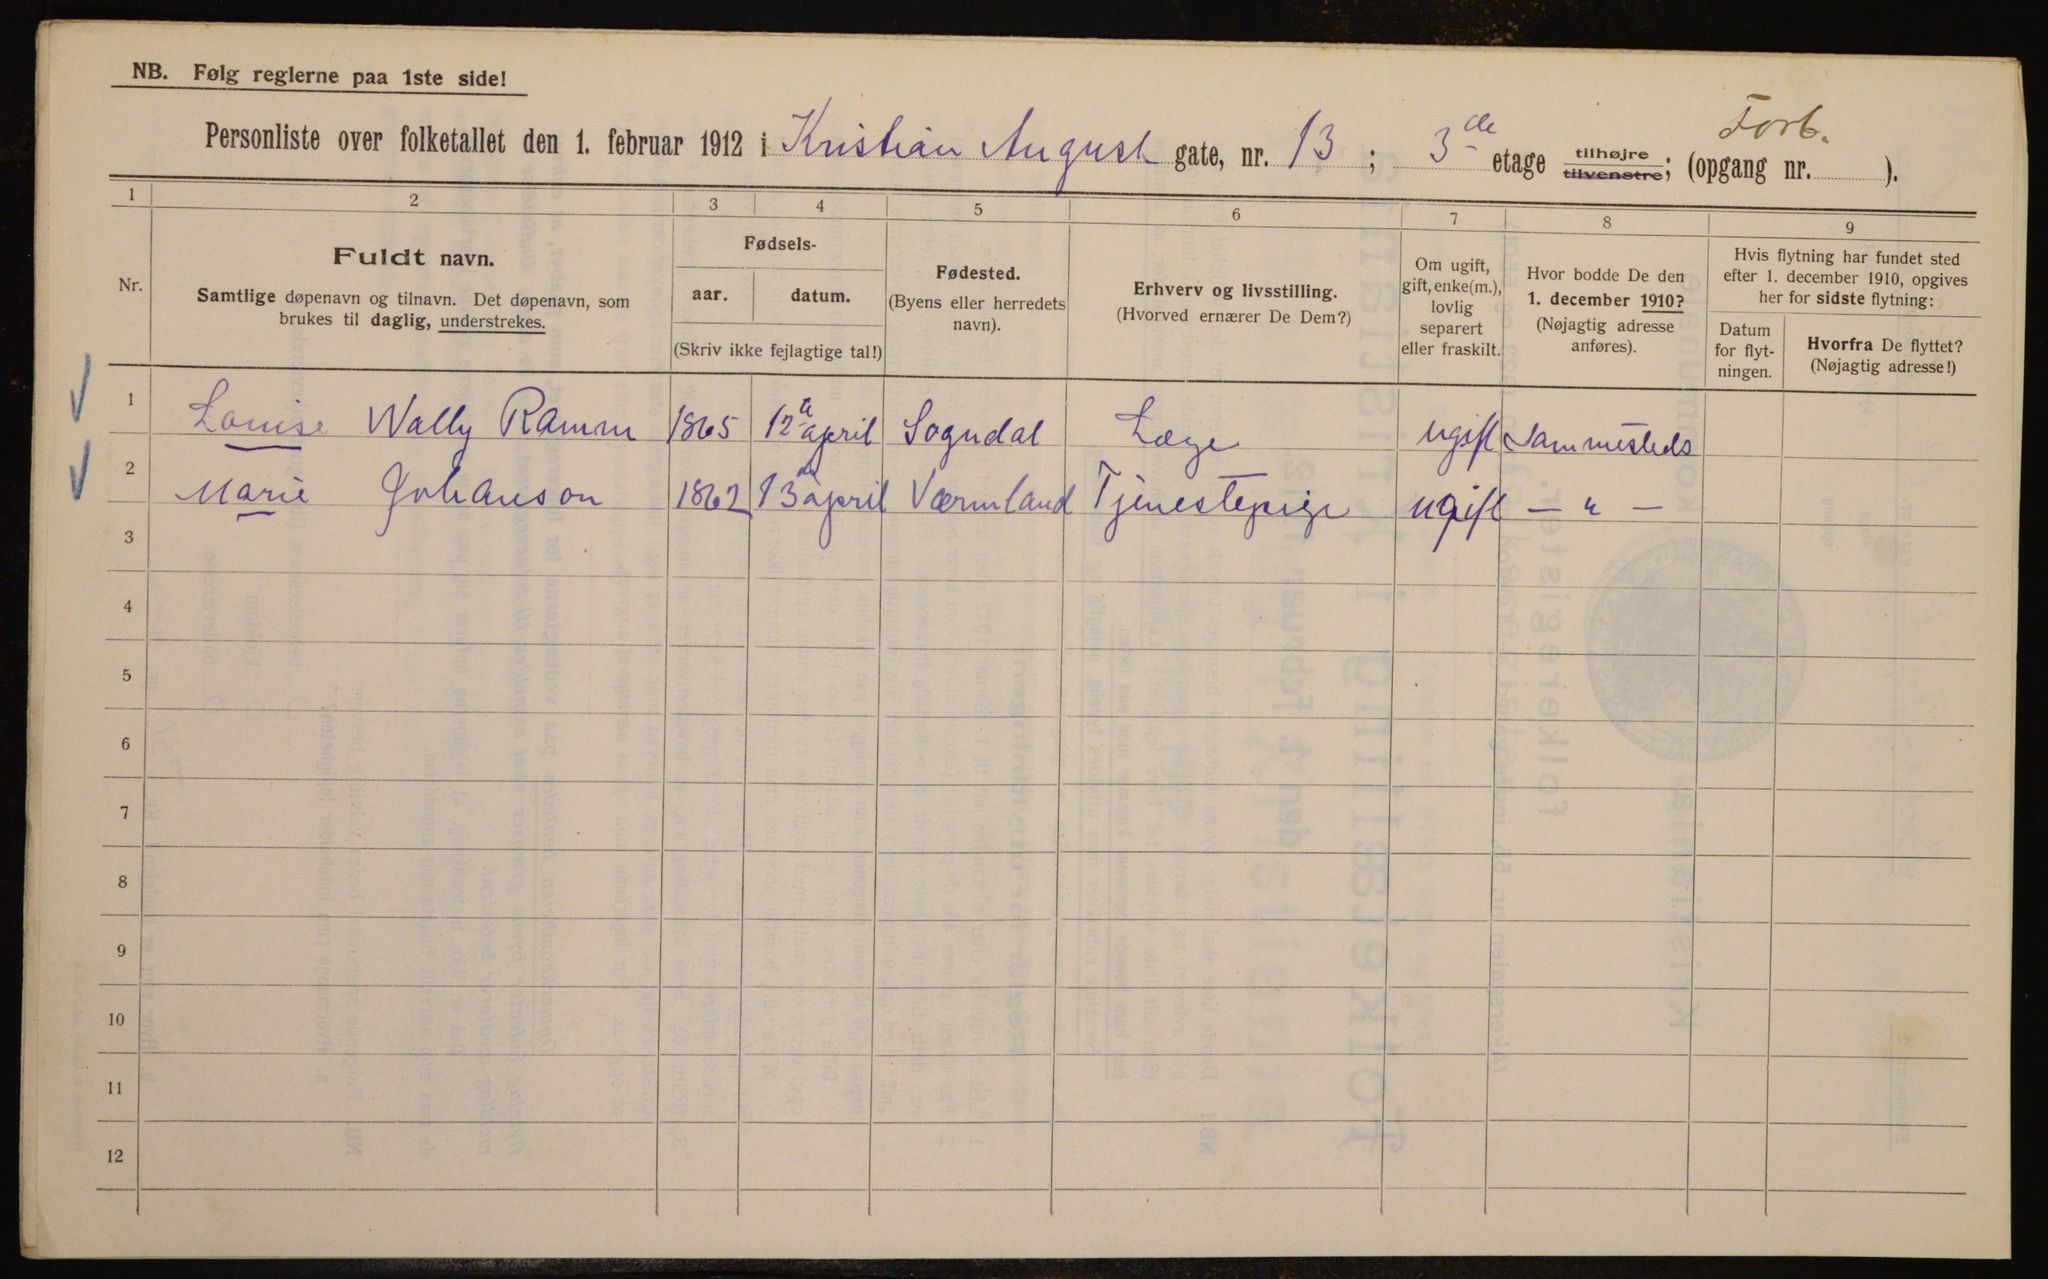 NB. Følg reglerne paa 1ste side!
Forb.
Personliste over folketallet den 1. februar 1912 i Kristian August gate, nr. 13; 3de etage tilhøjre tilvenstre; (opgang nr. ).
1 2 3 4 5 6 7 8 9
Nr.
Fuldt navn.
Samtlige døpenavn og tilnavn. Det døpenavn, som
brukes til daglig, understrekes.
Fødsels-
aar. datum.
(Skriv ikke fejlagtige tal!)
Fødested.
(Byens eller herredets
navn).
Erhverv og livsstilling.
(Hvorved ernærer De Dem?)
Om ugift,
gift, enke(m.),
lovlig
separert
eller fraskilt.
Hvor bodde De den
1. december 1910?
(Nøjagtig adresse
anføres).
Hvis flytning har fundet sted
efter 1. december 1910, opgives
her for sidste flytning:
Datum
for flyt-
ningen.
Hvorfra De flyttet?
(Nøjagtig adresse!)
1 Louise Wally Ramm 1865 12te april Sogndal Læge ugift Sammesteds
2 Marie Johanson 1862 13de april Værmland Tjenestepige ugift — " —
3
4
5
6
7
8
9
10
11
12